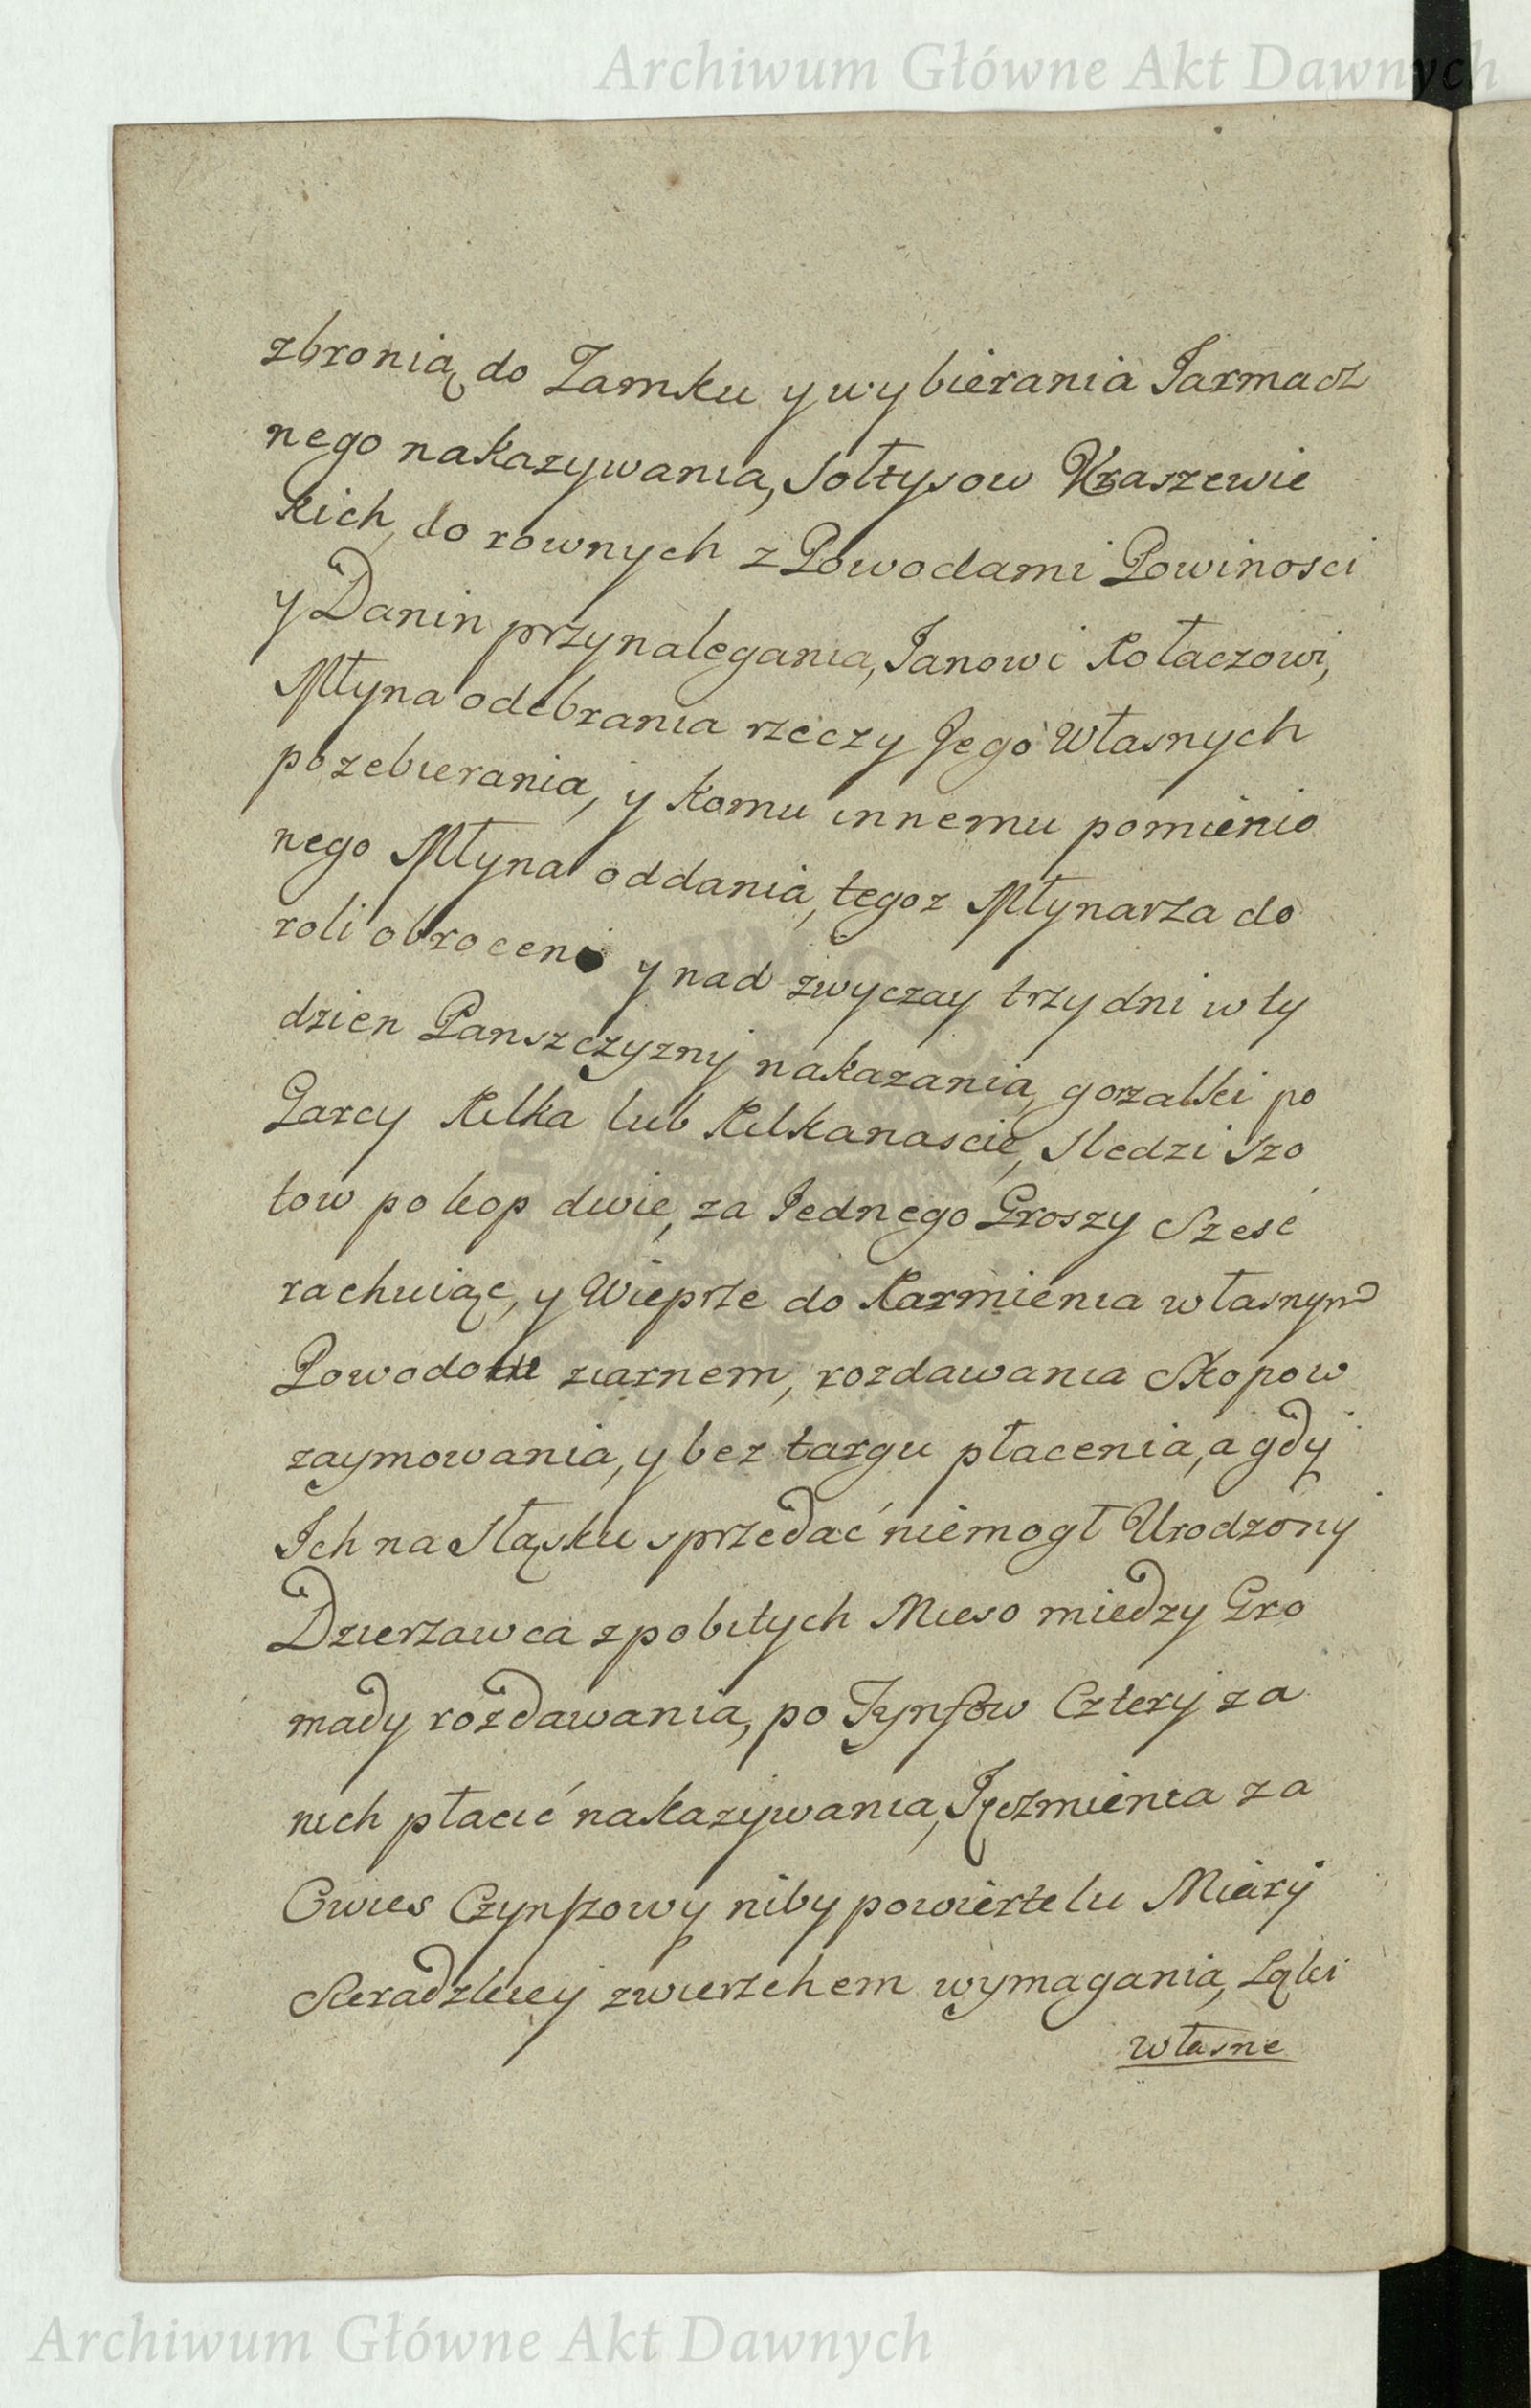 Archiwum Główne Akt Dawnych
zbronią do Zamku y wybierania Jarmacz
nego nakazywania, Sołtysow Kraszewic
kich, do rownych z Powodami Powinosci
y Danin przynalegania, Janowi Kołaczowi,
Młyna odebrania rzeczy Jego Własnych
pozebierania, y komu innemu pomienio
nego Młyna oddania, tegoz Młynarza do
roli obroceni y nad zwyczay trzy dni w ty
dzien Panszczyzny nakazania, gorzalki po
Garcy Kilka lub Kilkanascie, Sledzi Szo
tow po kop dwie, za Jednego Groszy Szesć
rachuiąc, y Wieprze do Karmienia własnym
Powodow ziarnem, rozdawania Skopow
zaymowania, y bez targu płacenia, a gdy
Ich na Sląsku sprzedać niemogł Urodzony
Dzierzawca z pobitych Mieso miedzy Gro
mady rozdawania, po Tynfow Cztery za
nich płacić nakazywania, Jęczmienia za
Owies Czynszowy niby powiertelu Miary
Sieradzkiey zwierzchem wymagania, Ląki
własne
Archiwum Główne Akt Dawnych